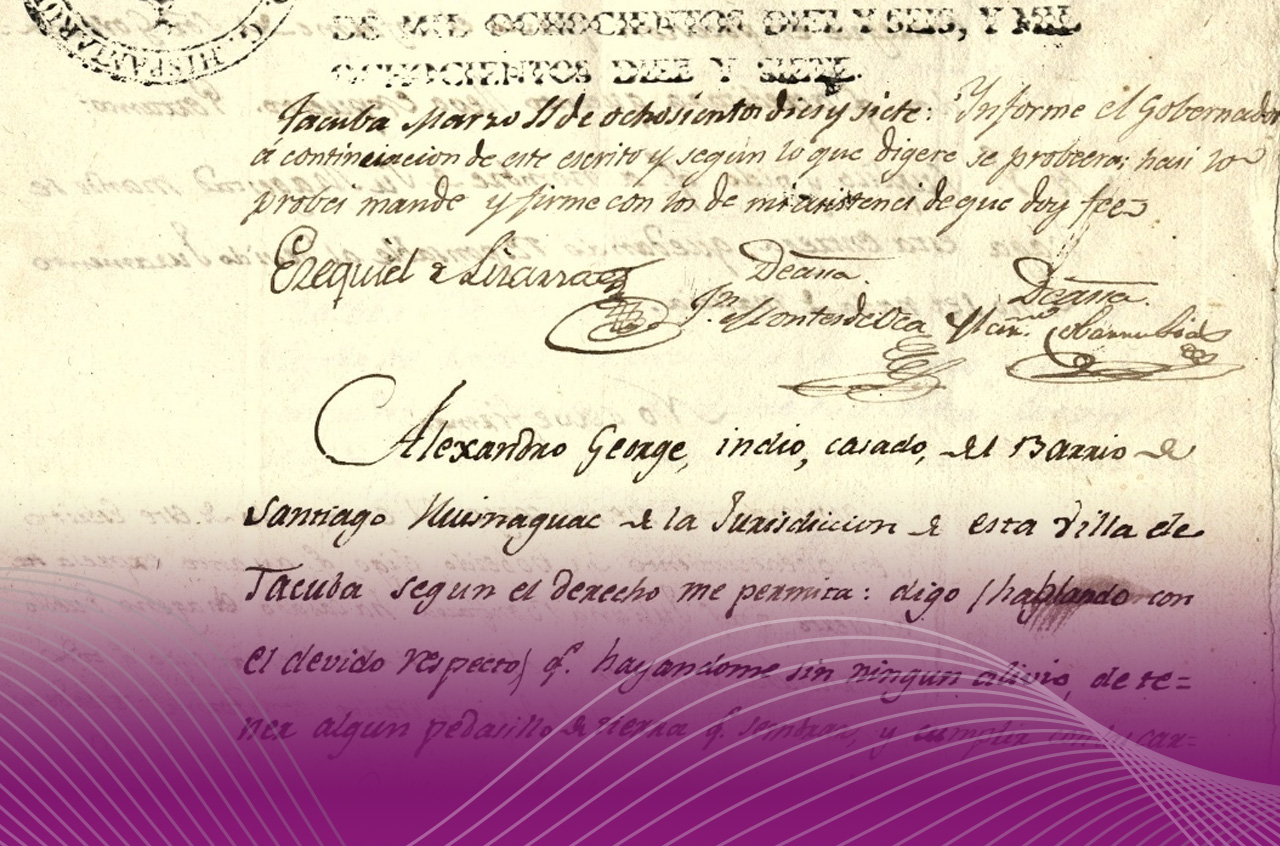 HISPANIARUM
DE MIL OCHOCIENTOS DIEZ Y SEIS, Y MIL
OCHOCIENTOS DIEZ Y SIETE.
Tacuba Marzo 11 de ochosientos dies y siete: Informe el Gobernador
á continuacion de este escrito y según lo que digere se probeera; hasi lo
probei mande y firme con los de mi asistenci de que doy fee
Ezequiel de Lizarraga
De assa. De assa.
Jn. Montesdeoca Marno. Cobarrubias
Alexandro George, indio, casado, del Barrio de
Santiago de la Jurisdiccion de esta Villa de
Tacuba segun el derecho me permita: digo (hablando con
el devido respecto) q.e hayandome sin ningun alivio, de te=
ner algun pedasillo de tierra q.e sembrar, y cumplir con las car=